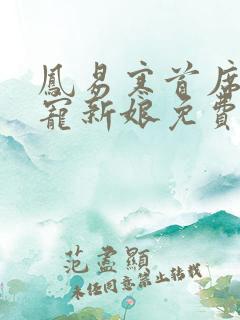 鳳易寒首席
寵新娘免費
范盡顯
未經同意禁止轉載